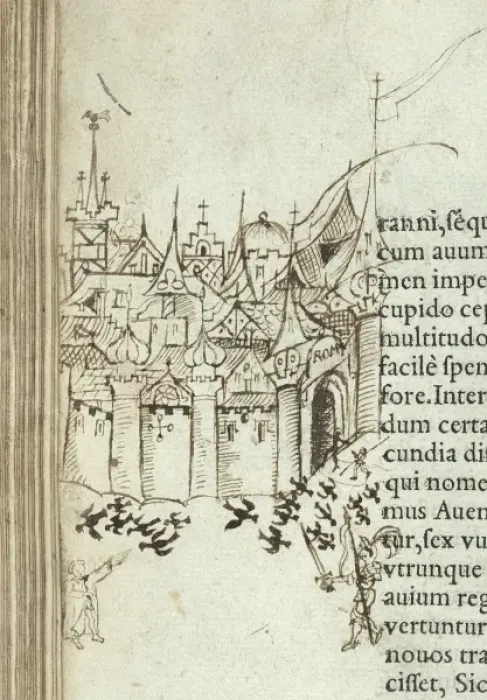 ROMA
ranni,sequ
cum auum
men impe
cupido cep
multitudo
facilè spen
fore.Inter
dum certa
cundia dis
qui nome
mus Auen
tur,sex vu
vtrunque
auium reg
vertuntur
nouos tra
cisset, Sic